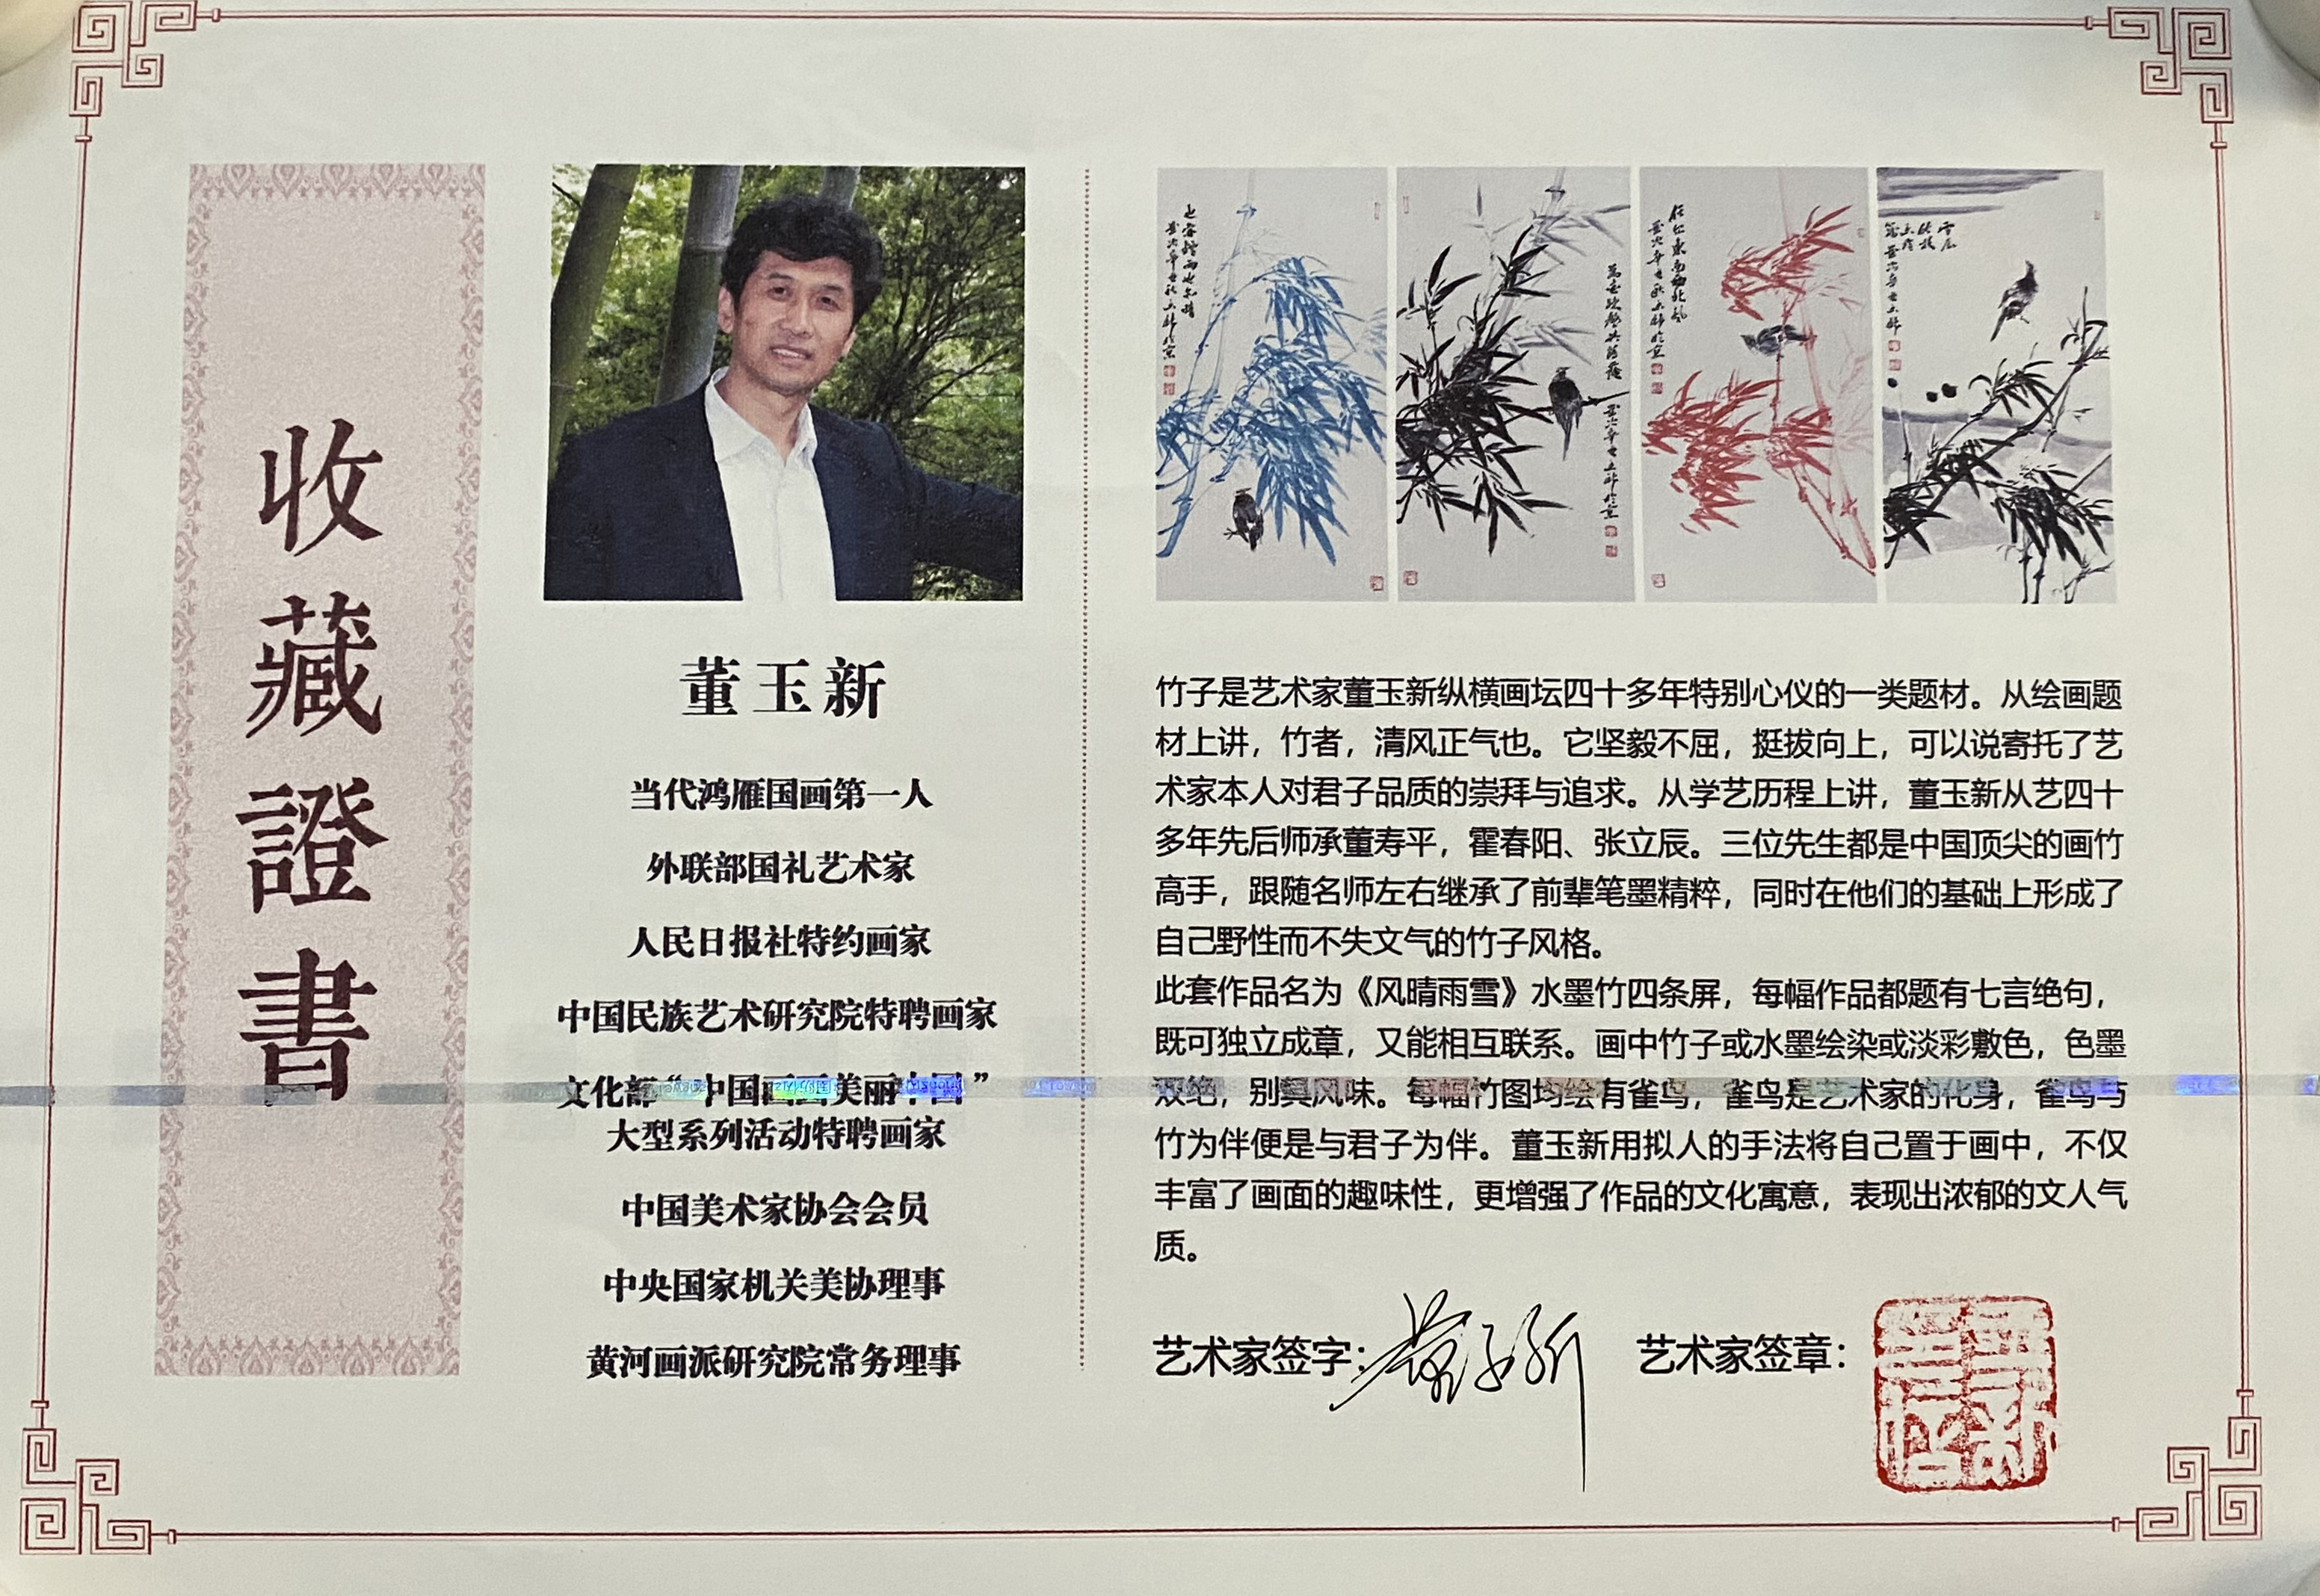 收藏證書
董玉新
当代鸿雁国画第一人
外联部国礼艺术家
人民日报社特约画家
中国民族艺术研究院特聘画家
文化部“中国画画美丽中国”
大型系列活动特聘画家
中国美术家协会会员
中央国家机关美协理事
黄河画派研究院常务理事
竹子是艺术家董玉新纵横画坛四十多年特别心仪的一类题材。从绘画题
材上讲，竹者，清风正气也。它坚毅不屈，挺拔向上，可以说寄托了艺
术家本人对君子品质的崇拜与追求。从学艺历程上讲，董玉新从艺四十
多年先后师承董寿平，霍春阳、张立辰。三位先生都是中国顶尖的画竹
高手，跟随名师左右继承了前辈笔墨精粹，同时在他们的基础上形成了
自己野性而不失文气的竹子风格。
此套作品名为《风晴雨雪》水墨竹四条屏，每幅作品都题有七言绝句，
既可独立成章，又能相互联系。画中竹子或水墨绘染或淡彩敷色，色墨
双绝，别具风味。每幅竹图均绘有雀鸟，雀鸟是艺术家的化身，雀鸟与
竹为伴便是与君子为伴。董玉新用拟人的手法将自己置于画中，不仅
丰富了画面的趣味性，更增强了作品的文化寓意，表现出浓郁的文人气
质。
艺术家签字：董玉新 艺术家签章：